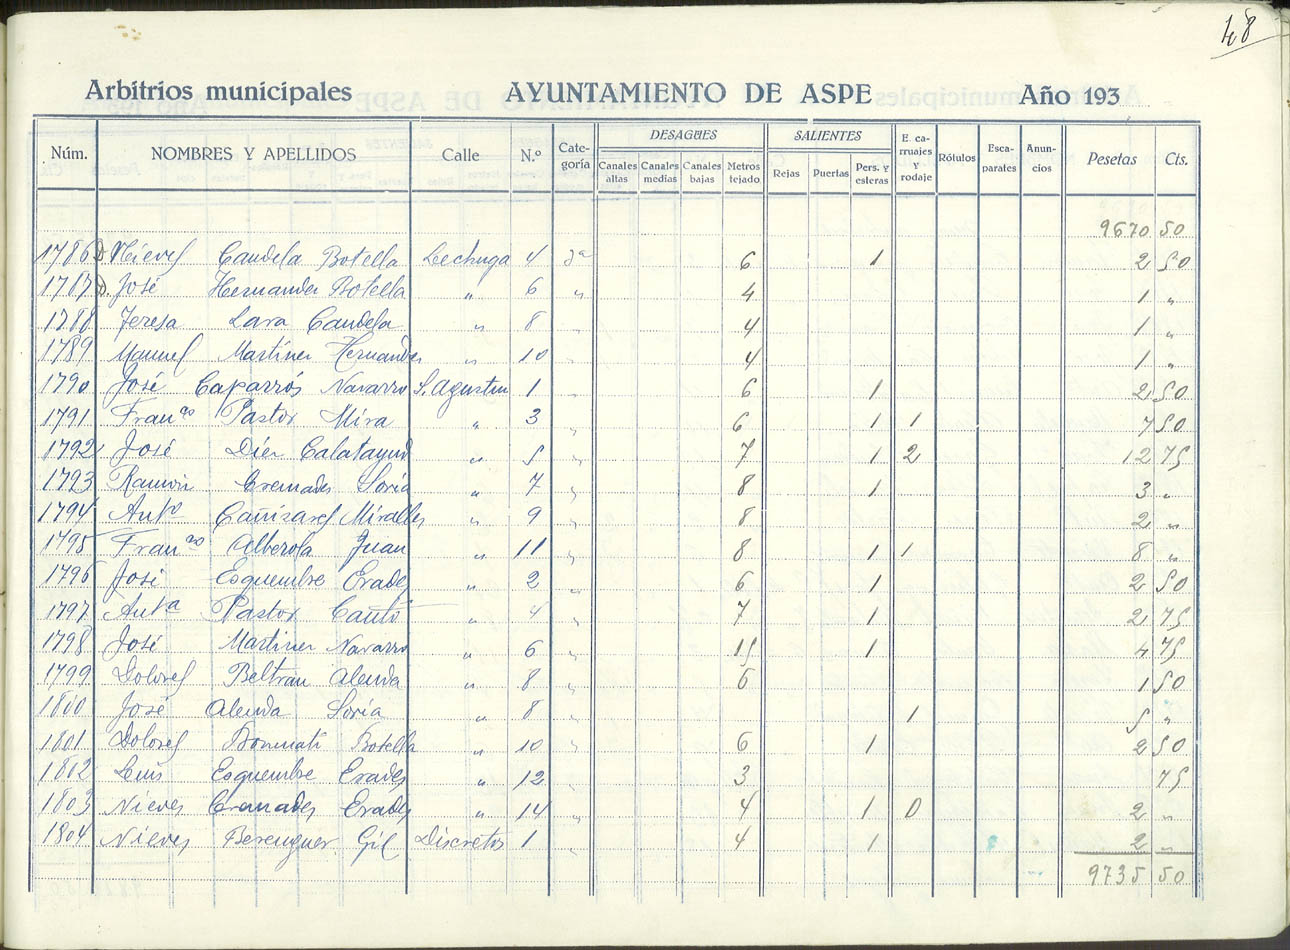 48
Arbitrios municipales AYUNTAMIENTO DE ASPE Año 193
Núm. NOMBRES Y APELLIDOS Calle N.º Categoría DESAGÜES Canales altas Canales medias Canales bajas Metros tejado SALIENTES Rejas Puertas Pers. y esteras E. carruajes y rodaje Rótulos Escaparates Anuncios Pesetas Cts.
9670 50
1786 D. Nieves Candela Botella Lechuga 4 3ª 6 1 2 50
1787 D. José Hernandez Botella " 6 " 4 1 "
1788 Teresa Lara Candela " 8 " 4 1 "
1789 Manuel Martinez Hernandez " 10 " 4 1 "
1790 José Caparrós Navarro S. Agustin 1 " 6 1 2 50
1791 Franco Pastor Mira " 3 " 6 1 1 7 50
1792 José Diez Calatayud " 5 " 7 1 2 12 75
1793 Ramón Cremades Soria " 7 " 8 1 3 "
1794 Anto Cañizares Miralles " 9 " 8 2 "
1795 Franco Alberola Juan " 11 " 8 1 1 8 "
1796 José Esquembre Erades " 2 " 6 1 2 50
1797 Anta Pastor Cantó " 4 " 7 1 2 75
1798 José Martinez Navarro " 6 " 15 1 4 75
1799 Dolores Beltrán Alenda " 8 " 6 1 50
1800 José Alenda Soria " 8 " 1 5 "
1801 Dolores Bonmati Botella " 10 " 6 1 2 50
1802 Luis Esquembre Erades " 12 " 3 75
1803 Nieves Cremades Erades " 14 " 4 1 0 2 "
1804 Nieves Berenguer Gil Discretos 1 " 4 1 2 "
9735 50